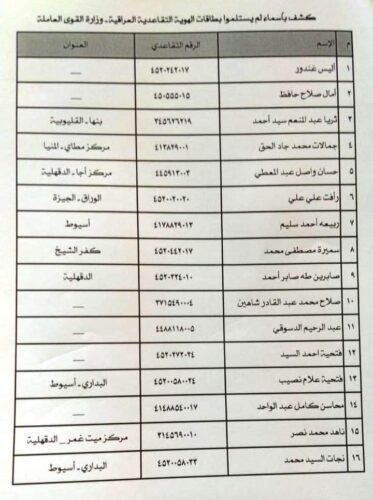 كشف بأسماء لم يستلموا بطاقات الهوية التقاعدية العراقية - وزارة القوى العاملة
م الإسم الرقم التقاعدي العنوان
١ أليس غندور ٤٥٢٠٢٤٢٠١٧ __
٢ أمال صلاح حافظ ٤٥٠٥٥٥٠١٥ __
٣ ثريا عبد المنعم سيد أحمد ٣٤٥٦٢٦٢١٩ بنها - القليوبية
٤ جمالات محمد جاد الحق ٤١٣٨٢٩٠٠١ مركز مطاي - المنيا
٥ حسان واصل عبد المعطي ٤٤٥٩١٢٠٠٣ مركز أجا - الدقهلية
٦ رأفت علي علي ٤٥٢٠٠٢٠٢٠ الوراق - الجيزة
٧ ربيعه أحمد سليم ٤١٧٨٨٢٩٠١٢ أسيوط
٨ سميرة مصطفى محمد ٤٥٢٠٤٤٢٠١٧ كفر الشيخ
٩ صابرين طه صابر أحمد ٤٥٢٠٣٢٤٠١٠ الدقهلية
١٠ صلاح محمد عبد القادر شاهين ٣٧١٥٤٩٠٠٠٤ __
١١ عبد الرحيم الدسوقي ٤٤٨٨١١٨٠٠٥ __
١٢ فتحية احمد السيد ٤٥٢٠٢٧٢٠٢٤ __
١٣ فتحية علام نصيب ٤٥٢٠٠٥٨٠٠٢٤ البداري - أسيوط
١٤ محاسن كامل عبد الواحد ٤١٤٨٨٥٤٠٠١٧ __
١٥ ناهد محمد نصر ٣١٤٥٦٩٠٠١٠ مركز ميت غمر_ الدقهلية
١٦ نجات السيد محمد ٤٥٢٠٠٥٨٠٣٣ البداري - أسيوط